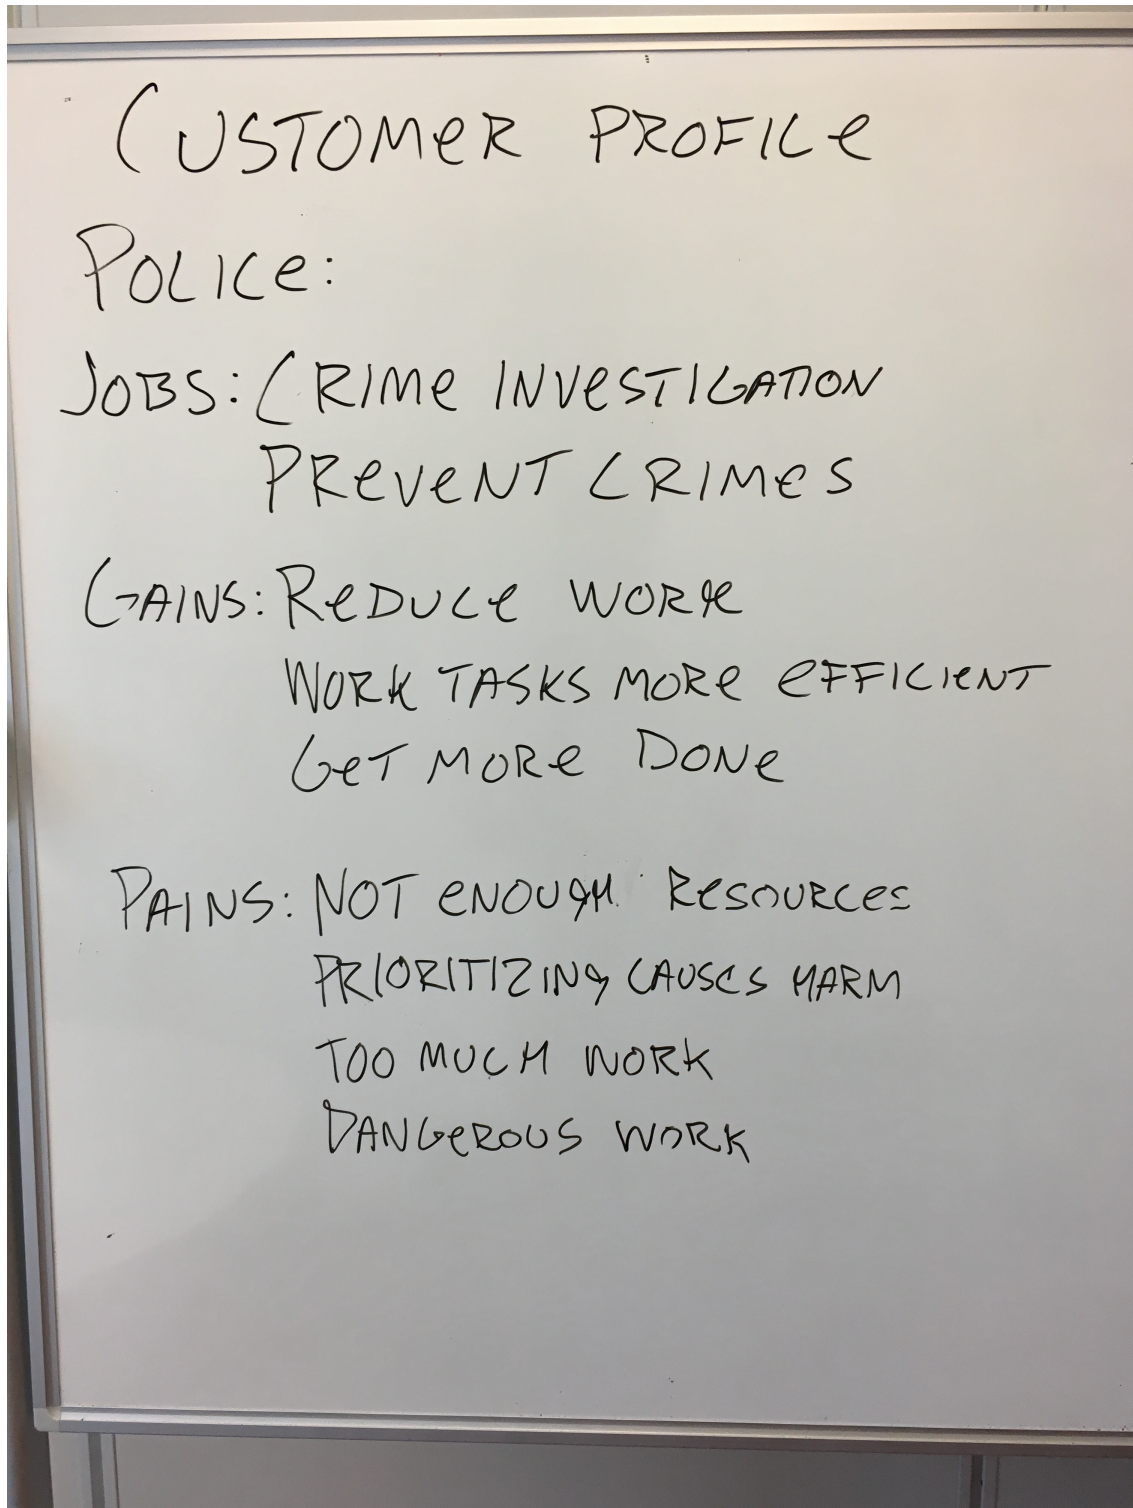 CUSTOMER PROFILE
POLICE:
JOBS: CRIME INVESTIGATION
PREVENT CRIMES
GAINS: REDUCE WORK
WORK TASKS MORE EFFICIENT
GET MORE DONE
PAINS: NOT ENOUGH RESOURCES
PRIORITIZING CAUSES HARM
TOO MUCH WORK
DANGEROUS WORK